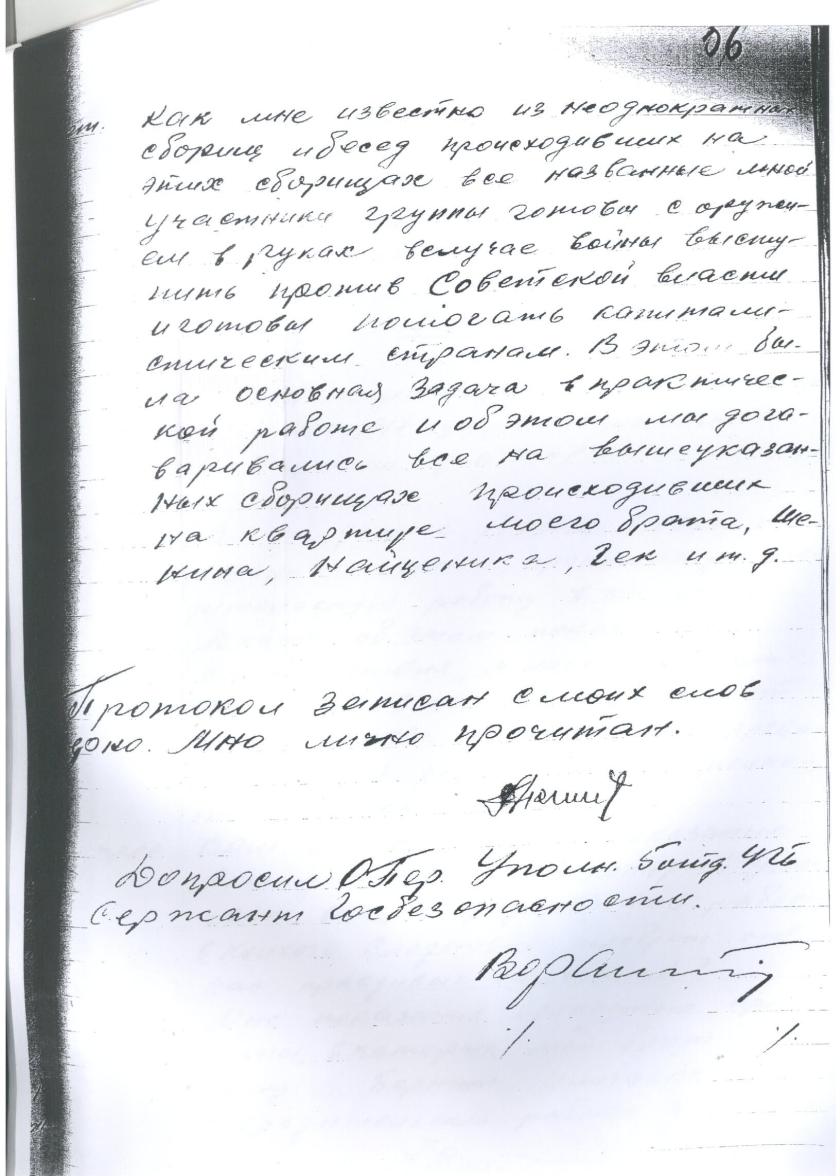 06
от. Как мне известно из неоднократных
сборищ и бесед происходивших на
этих сборищах все названные мной
участники группы готовы с оружи-
ем в руках вслучае войны высту-
пить против Советской власти
и готовы помогать капитали-
стическим странам. В этом бы-
ла основная задача в практичес-
кой работе и об этом мы дога-
варивались все на вышеуказан-
ных сборищах происходивших
на квартире моего брата, Ше-
нина, Найценика, Гек и т. д.
Протокол записан с моих слов
Мно лично прочитан.
Допросил О Пер. Уполн. 5 отд. УГБ
Сержант Госбезопасности.